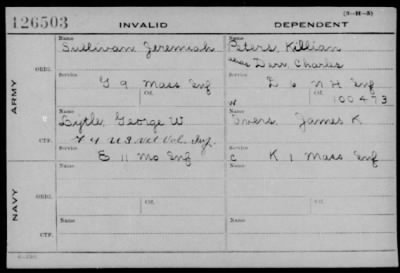 (3-H-5)
126503 INVALID DEPENDENT
Name Name
Sullivan Jeremiah Peters Killian
alias Derr, Charles
ORIG. Service Ctf. Service Ctf.
G 9 Mass Inf E 6 N H Inf
W 100473
ARMY
Name Name
Lytle George W Ivers James K
F 4 U S Vet Vol Inf.
CTF. Service Service
E 11 Mo Inf C K 1 Mass Inf
Name Name
ORIG. Service Ctf. Service Ctf.
NAVY
Name Name
CTF. Service Service